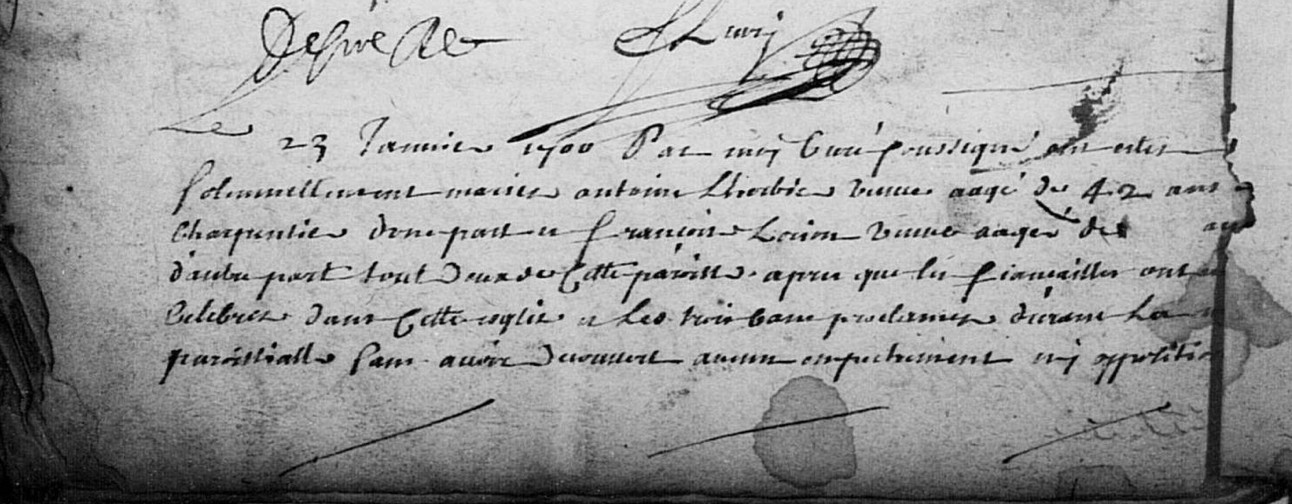 Le 23 Janvier 1700 Par moy Curé soussigné ont estés
solennellement mariés antoine Lherbier veuve aagé de 42 ans
Charpentier d'une part et françoise Lorion veuve aagée de ans
d'autre part tout deux de Cette paroisse apres que les fiancailles ont
Celebrez dans Cette eglise et Les trois bans proclamez durant La
paroissialle sans avoir decouvert aucun empechement ny oppositio